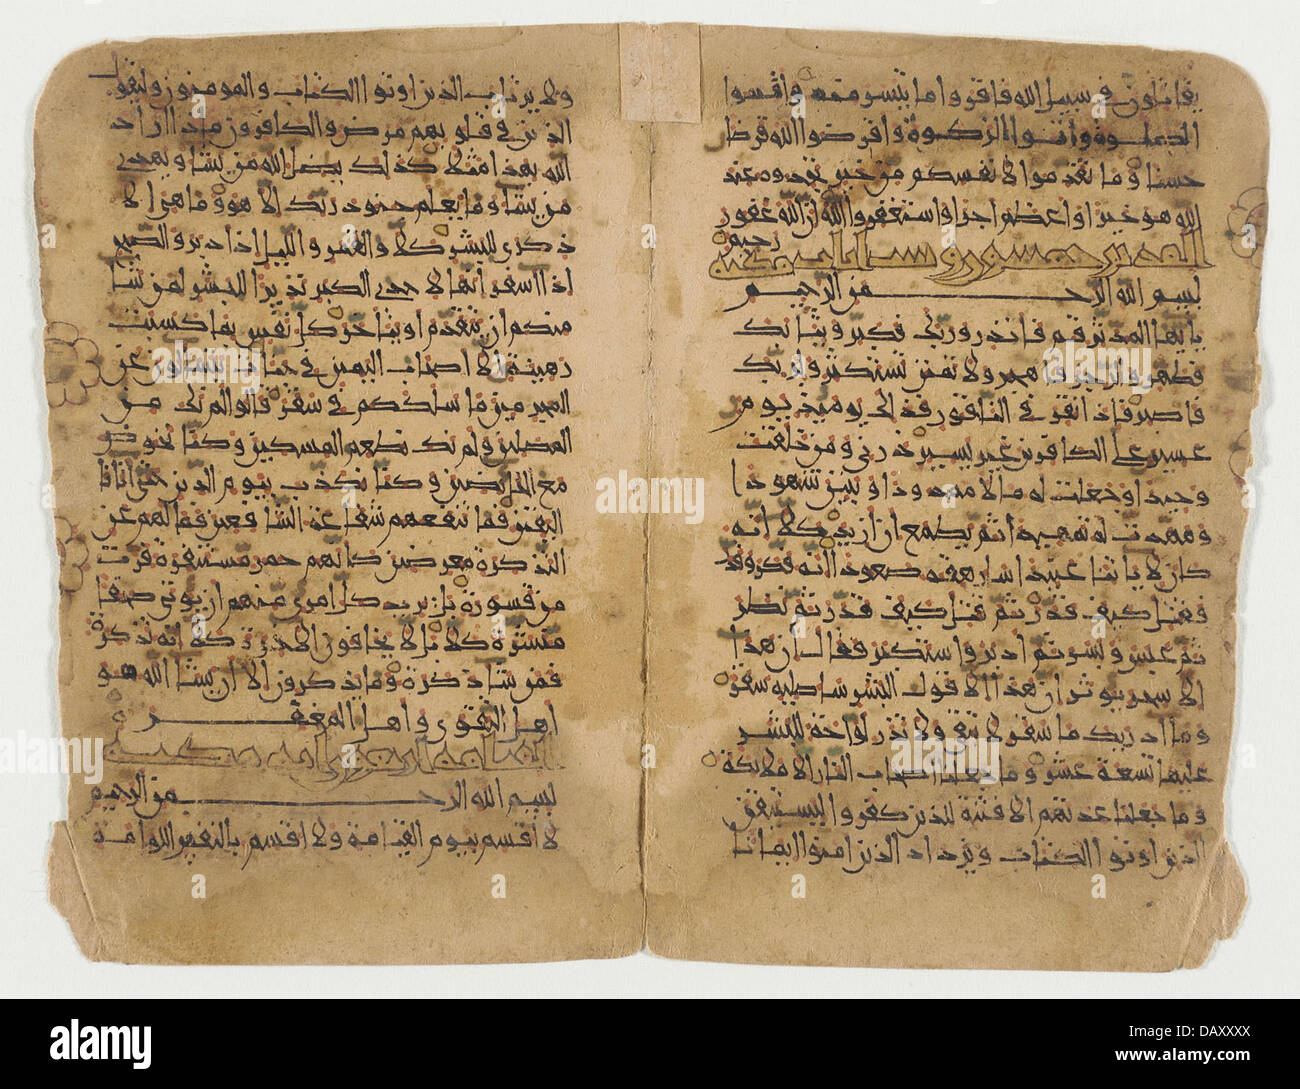 يقاتلون في سبيل الله فاقروا ما تيسر منه واقيموا
الصلوة واتوا الزكوة واقرضوا الله قرضا
حسنا وما تقدموا لا نفسكم من خير تجدوه عند
الله هو خيرا واعظم اجرا واستغفروا الله ان الله غفور
رحيم
المدثر خمسون وست ايات مكية
بسم الله الرحمن الرحيم
يايها المدثر قم فانذر وربك فكبر وثيابك
فطهر والرجز فاهجر ولا تمنن تستكثر ولربك
فاصبر فاذا نقر في الناقور فذلك يوميذ يوم
عسير على الكافرين غير يسير ذرني ومن خلقت
وحيدا وجعلت له مالا ممدودا وبنين شهودا
ومهدت له تمهيدا ثم يطمع ان ازيد كلا انه
كان لاياتنا عنيدا سارهقه صعودا انه فكر وقد
فقتل كيف قدر ثم قتل كيف قدر ثم نظر
ثم عبس وبسر ثم ادبر واستكبر فقال ان هذا
الا سحر يوثر ان هذا الا قول البشر ساصليه سقر
وما ادريك ما سقر لا تبقي ولا تذر لواحة للبشر
عليها تسعة عشر وما جعلنا اصحاب النار الا ملايكة
وما جعلنا عدتهم الا فتنة للذين كفروا ليستيقن
الذين اوتوا الكتاب ويزداد الذين امنوا ايمانا
ولا يرتاب الذين اوتوا الكتاب والمومنون وليقول
الذين في قلوبهم مرض والكافرون ماذا اراد
الله بهذا مثلا كذلك يضل الله من يشا ويهدي
من يشا وما يعلم جنود ربك الا هو وما هي الا
ذكرى للبشر كلا والقمر والليل اذا ادبر والصبح
اذا اسفر انها لاحدى الكبر نذيرا للبشر لمن شا
منكم ان يتقدم او يتاخر كل نفس بما كسبت
رهينة الا اصحاب اليمين في جنات يتسالون عن
المجرمين ما سلككم في سقر قالوا لم نك من
المصلين ولم نك نطعم المسكين وكنا نخوض
مع الخايضين وكنا نكذب بيوم الدين حتى اتانا
اليقين فما تنفعهم شفاعة الشافعين فما لهم عن
التذكرة معرضين كانهم حمر مستنفرة فرت
من قسورة بل يريد كل امرئ منهم ان يوتى صحفا
منشرة كلا بل لا يخافون الاخرة كلا انه تذكرة
فمن شا ذكره وما يذكرون الا ان يشا الله هو
اهل التقوى واهل المغفرة
القيامة اربعون اية مكية
بسم الله الرحمن الرحيم
لا اقسم بيوم القيامة ولا اقسم بالنفس اللوامة
alamy
alamy stock photo
DAXXXX
www.alamy.com